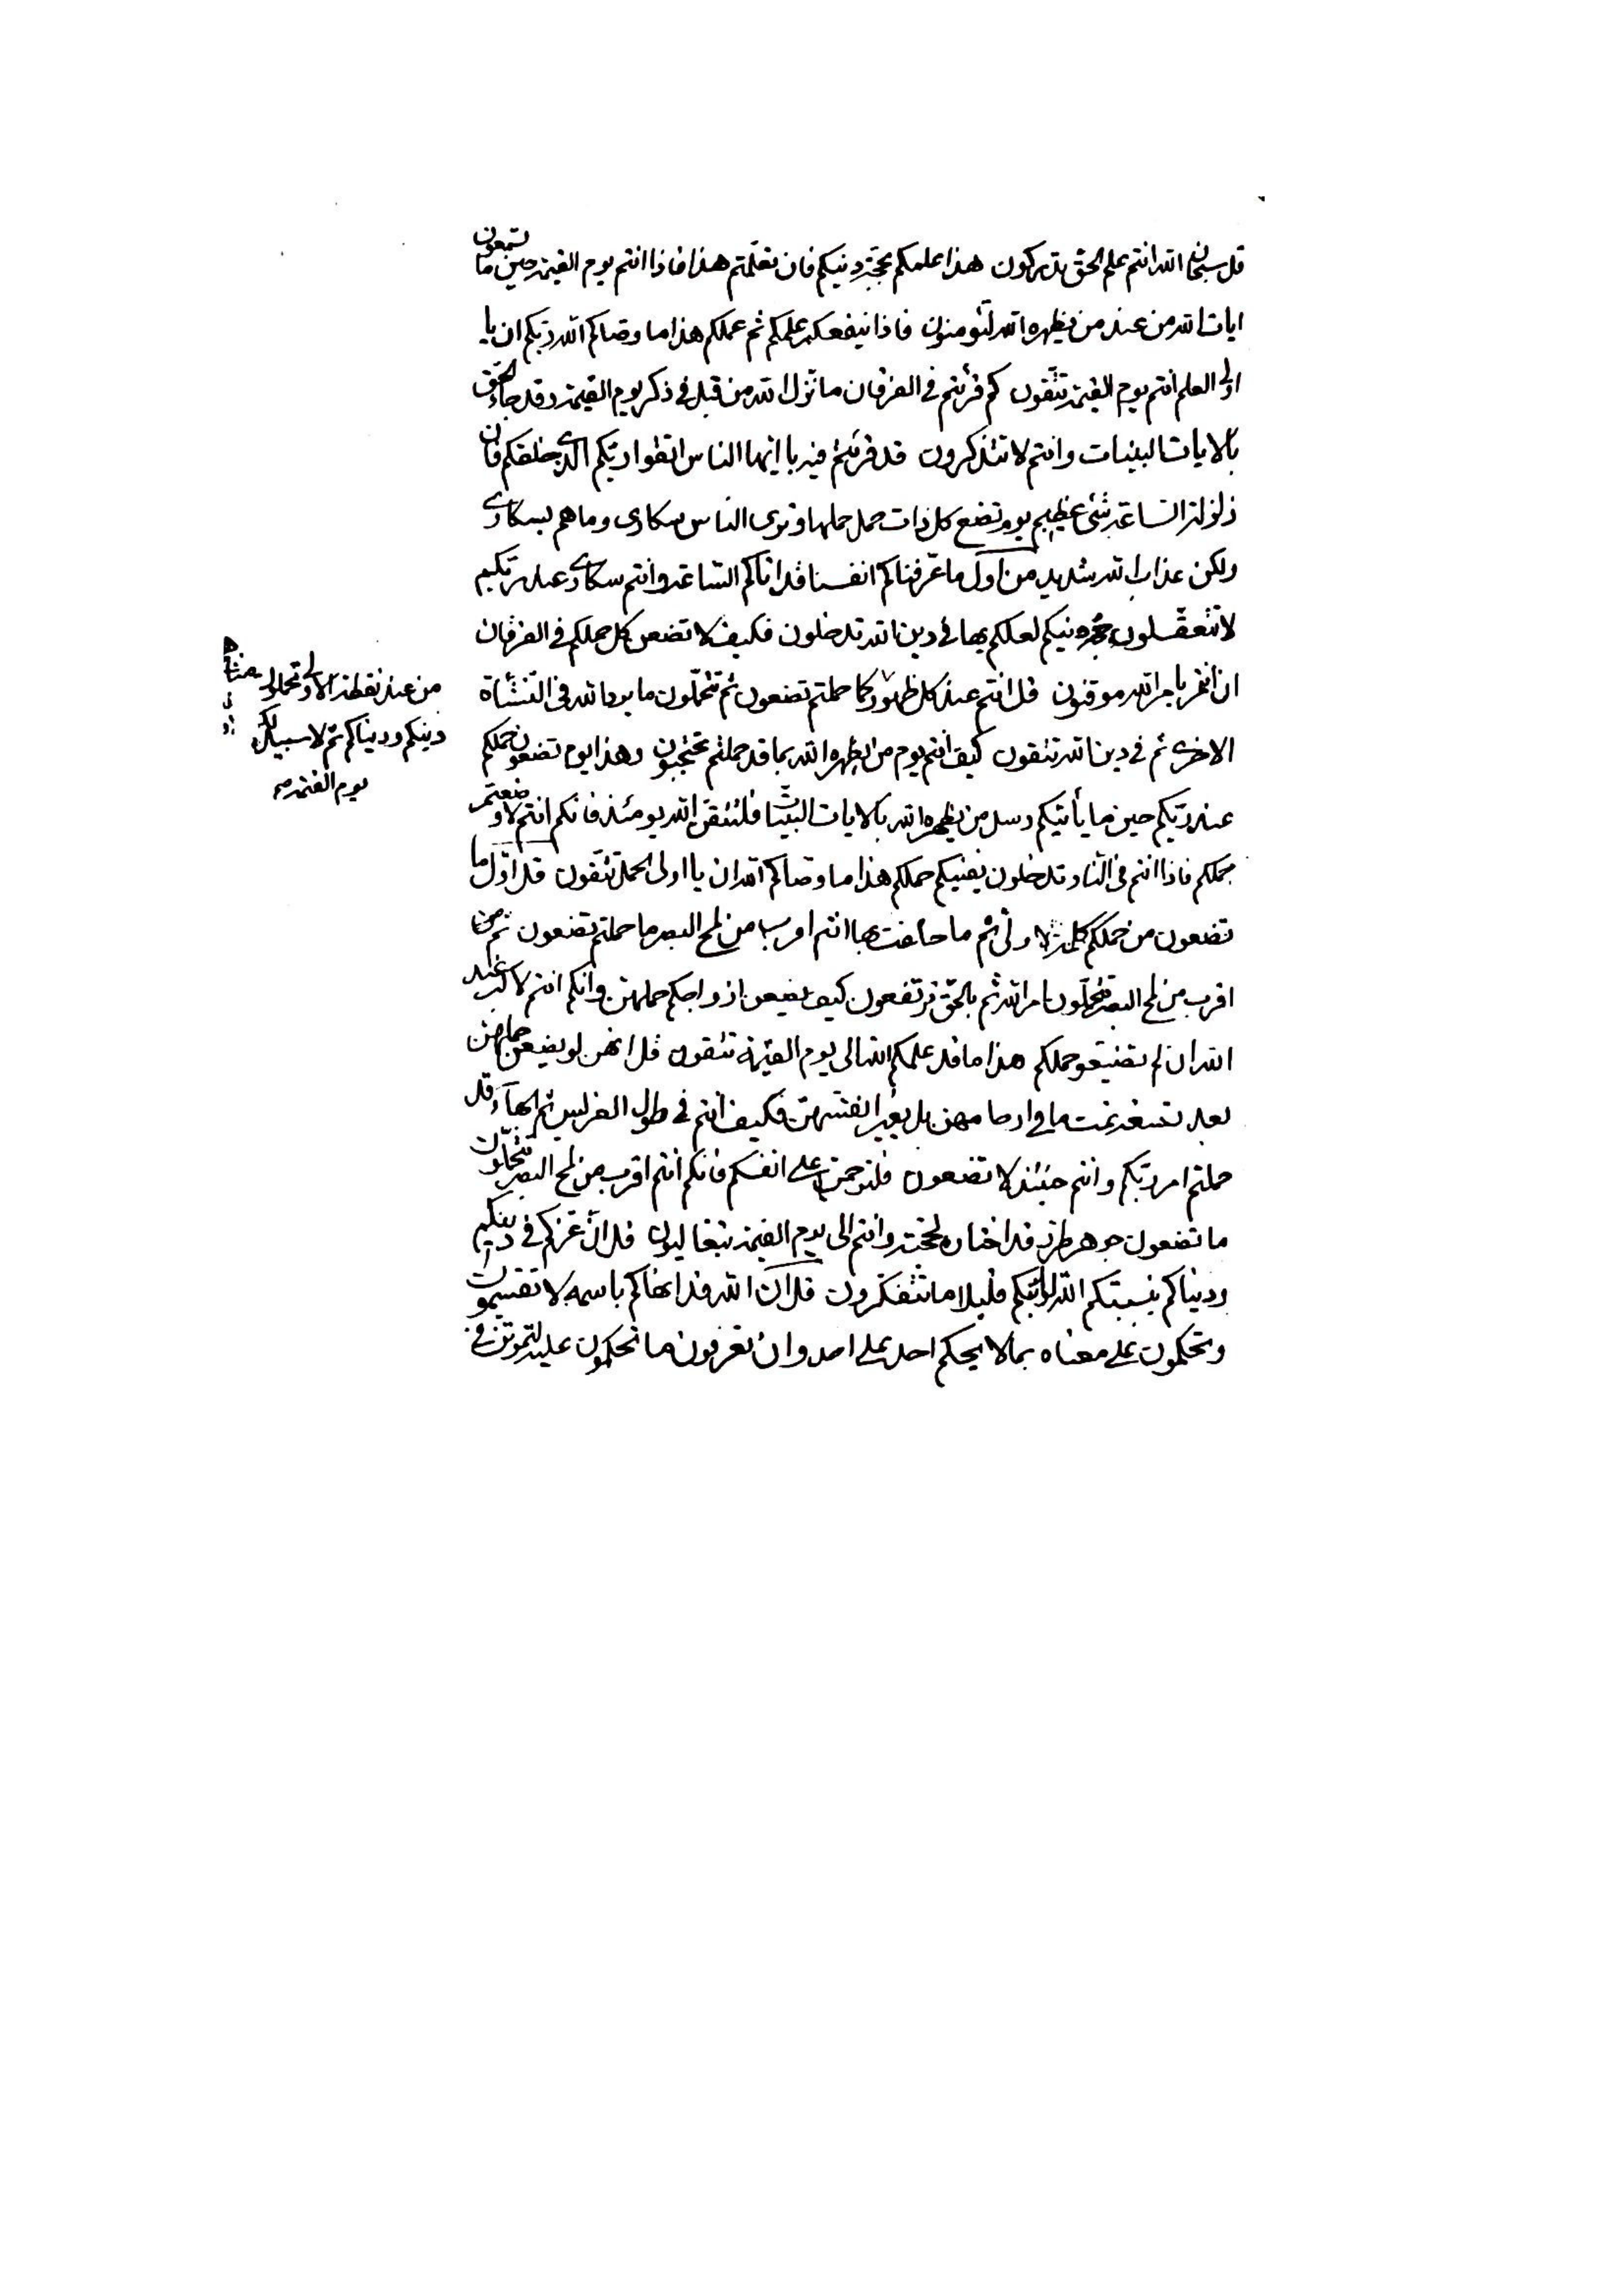 قل سبحان الله انتم علم الحق تدركون هذا علمكم بحجة دينكم فان تعلمتم هذا فاذا انتم يوم القيمة حين ما تسمعون
ايات الله من عند من يظهره الله لتؤمنون فاذا ينفعكم علمكم ثم عملكم هذا ما وصاكم الله ربكم ان يا
اولى العلم انتم يوم القيمة تتقون كم قرئتم فى الفرقان ما نزل الله من قبل فى ذكر يوم القيمة وقد جاء الحق
بالايات البينات وانتم لا تتذكرون قد قرئتم فيه يا ايها الناس اتقوا ربكم الذى خلقكم فان
زلزلة الساعة شئ عظيم يوم تضع كل ذات حمل حملها وترى الناس سكارى وما هم بسكارى
ولكن عذاب الله شديد من اول ما عرفناكم انفسنا قد اتاكم الساعة وانتم سكارى عند ربكم
لا تتعقلون دينكم لعلكم بها فى دين الله تدخلون فكيف لا تضعن كل حملكم فى الفرقان
ان انتم بامر الله موقنون قل انتم عند كل ظهور كما حملتم تضعون ثم تتحملون ما يريد الله فى النشأة
الاخرى ثم فى دين الله تتقون كيف انتم يوم من يظهره الله بما قد حملتم تحتجبون وهذا يوم تضعون حملكم
عند ربكم حين ما يأتيكم رسل من يظهره الله بالايات البينات فلتتقن الله يومئذ فانكم انتم لو وضعتم
حملكم فاذا انتم فى النار تدخلون يفنيكم حملكم هذا ما وصاكم الله ان يا اولى الحمل تتقون قل اول ما
تضعون من حملكم كلمة الاولى ثم ما خلقت بها انتم اقرب من لمح البصر ما حملتم تضعون ثم من
اقرب من لمح البصر تتحملون امر الله ثم بالحق ترتفعون كيف يضعن ازواجكم حملهن وانكم انتم لاكبر عند
الله ان لم تضيعو حملكم هذا ما قد علمكم الله الى يوم القيمة تتقون قل انهن لو يضعن حملهن
بعد تسعة يمت ما فى ارحامهن بل يغير انفسهن فكيف انتم فى طول الفرلس ثم وقد
حملتم امر ربكم وانتم حينئذ لا تضعون فلترحمن على انفسكم فانكم انتم اقرب من لمح البصر تتحملون
ما تضعون جوهر طرز قد اختاره لحجته وانتم الى يوم القيمة تتعاليون قل ان عزكم فى دينكم
ودنياكم بنسبتكم الله ربكم قليلا ما تتفكرون قل ان الله قد انهاكم باسمه لا تقسمون
وتحكمون على معناه بما لا يحكم احد على احد وان تعرفون ما تحكمون عليه لتموتن فى
من عند نقطة الاولى تحملوا
دينكم ودنياكم ثم لا سبيل لكم
يوم القيمة صح